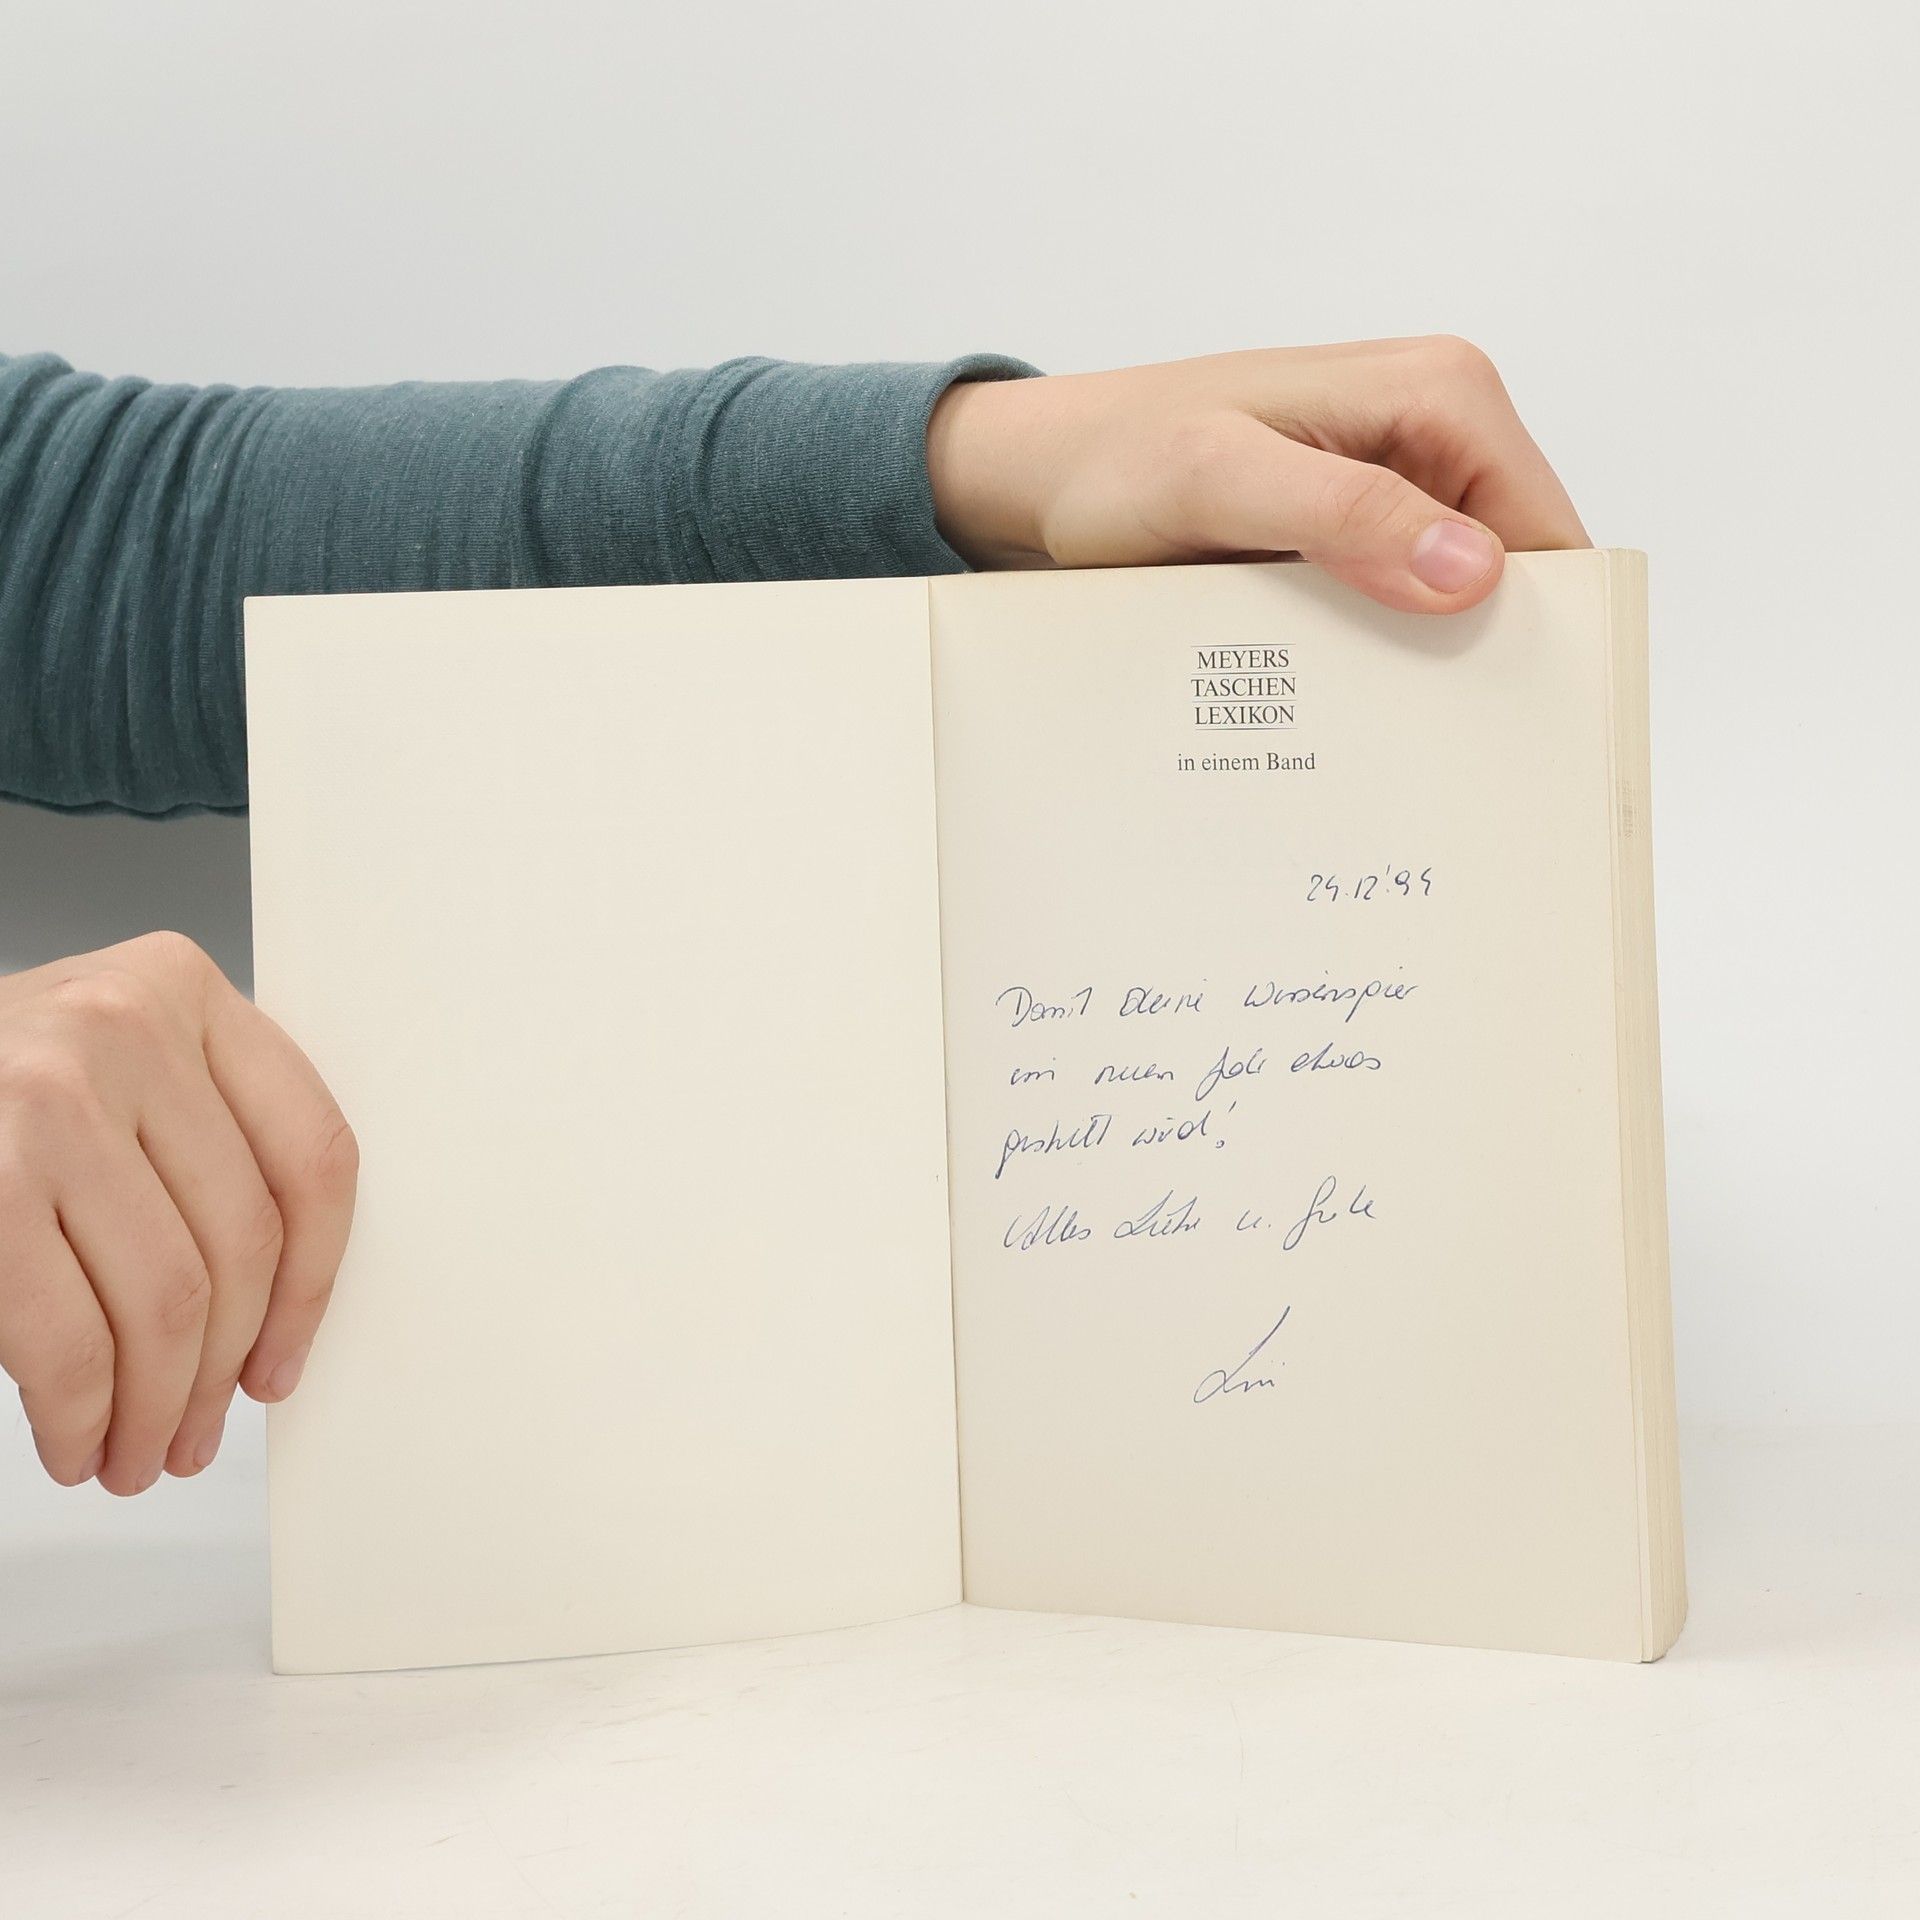 MEYERS
TASCHEN
LEXIKON
in einem Band
24.12'.94
Damit Deine Wissensgier
im neuen Jahr etwas
gestillt wird!
Alles Liebe u. Gute